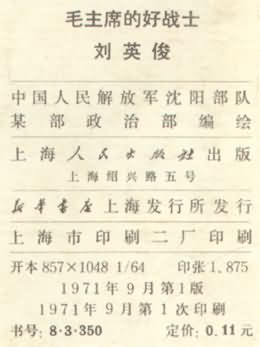 毛主席的好战士
刘英俊
中国人民解放军沈阳部队
某部政治部编绘
上海人民出版社出版
上海绍兴路五号
新华书店上海发行所发行
上海市印刷二厂印刷
开本 857×1048 1/64 印张 1.875
1971年9月第1版
1971年9月第1次印刷
书号: 8·3·350 定价: 0.11元